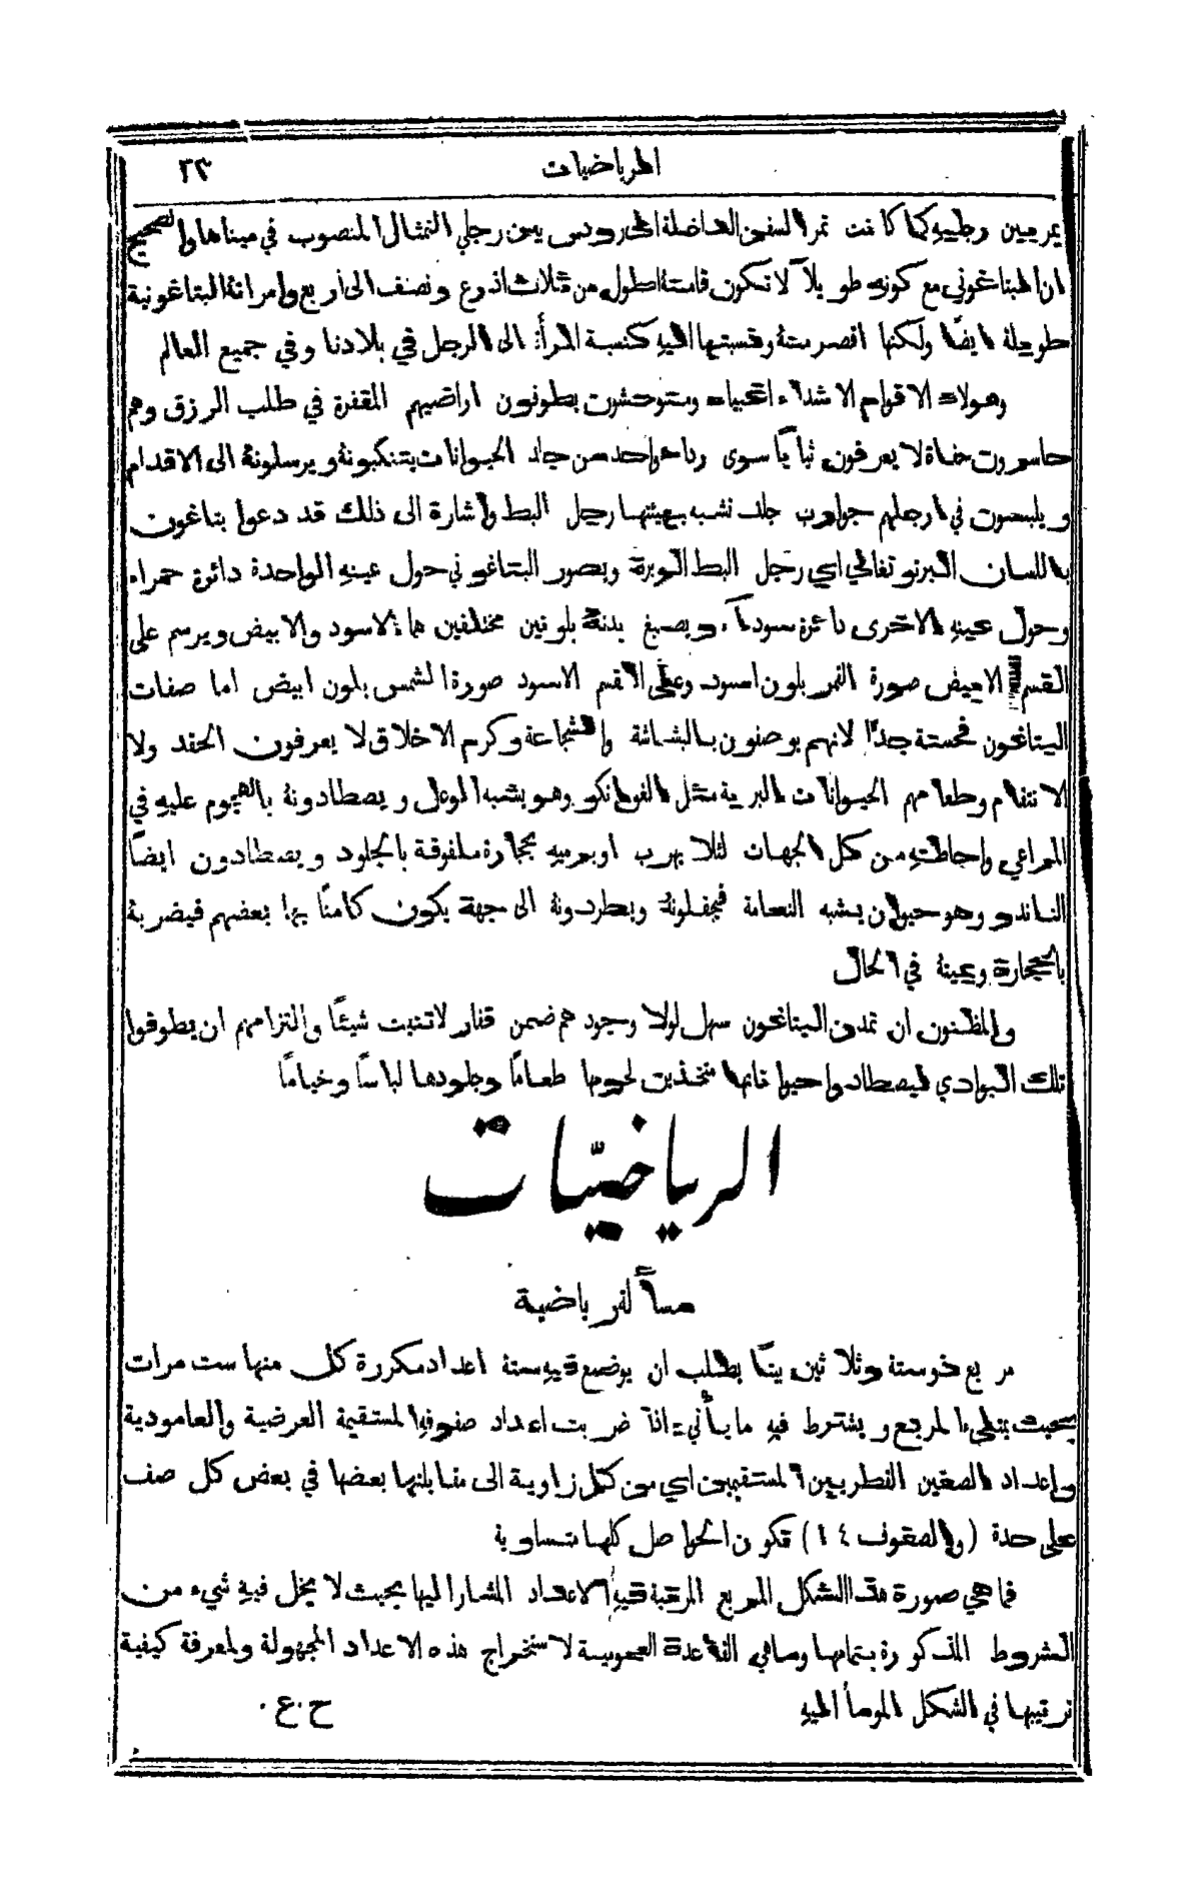 الرياضيات ٢٣
يمر بين رجليهِ كما كانت تمر السفن الفاضلة الى رودس بين رجلي التمثال المنصوب في مينائها والصحيح
ان البتاغوني مع كونهِ طويلاً لا تكون قامتهُ اطول من ثلاث اذرع ونصف الى اربع وامرأة البتاغونية
طويلة ايضًا ولكنها اقصر منهُ ونسبتها اليهِ كنسبة المرأة الى الرجل في بلادنا وفي جميع العالم
وهولاء الاقوام الاشداء اقوياء ومتوحشون يطوفون اراضيهم المقفرة في طلب الرزق وهم
حاسرون حفاة لا يعرفون ثيابًا سوى رداء واحد من جلد الحيوانات يتنكبونهُ ويرسلونهُ الى الاقدام
ويلبسون في ارجلهم جوارب جلد تشبه بهيئتها رجل البط واشارة الى ذلك قد دعوا بتاغون
باللسان البرتوغالي اي رجل البط الوبرة ويصور البتاغوني حول عينهِ الواحدة دائرة حمراء
وحول عينهِ الاخرى دائرة سوداء ويصبغ بدنهُ بلونين مختلفين هما الاسود والابيض ويرسم على
القسم الابيض صورة القمر بلون اسود وعلى القسم الاسود صورة الشمس بلون ابيض اما صفات
البتاغون فحسنة جدًّا لانهم يوصفون بالبشاشة والشجاعة وكرم الاخلاق لا يعرفون الحقد ولا
الانتقام وطعامهم الحيوانات البرية مثل الغواناكو وهو يشبه الوعل ويصطادونهُ بالهجوم عليهِ في
المراعي واحاطتهِ من كل الجهات لئلا يهرب او برميهِ بحجارة ملفوفة بالجلود ويصطادون ايضًا
الناندو وهو حيوان يشبه النعامة فيجفلونهُ ويطردونهُ الى جهة يكون كامنًا بها بعضهم فيضربهُ
بالحجارة ويميتهُ في الحال
والمظنون ان تمدن البتاغون سهل لولا وجودهم ضمن قفار لا تنبت شيئًا والتزامهم ان يطوفوا
تلك البوادي ليصطادوا حيواناتها متخذين لحومها طعامًا وجلودها لباسًا وخيامًا
الرياضيّات
مسألة رياضية
مربع ذو ستة وثلاثين بيتًا يطلب ان يوضع فيهِ ستة اعداد مكررة كل منها ست مرات
بحيث يمتلىء المربع ويشترط فيهِ ما يأتي اذا ضربت اعداد صفوفهِ المستقيمة العرضية والعامودية
واعداد الصفين القطريين المستقيمين اي من كل زاوية الى مقابلتها بعضها في بعض كل صف
على حدة (والصفوف ١٤) تكون الحواصل كلها متساوية
فما هي صورة هذا الشكل المربع المرتبة فيهِ الاعداد المشار اليها بحيث لا يخل فيهِ شيء من
الشروط المذكورة بتمامها وما هي القاعدة العمومية لاستخراج هذه الاعداد المجهولة ولمعرفة كيفية
ترتيبها في الشكل الموما اليهِ ح.ع.